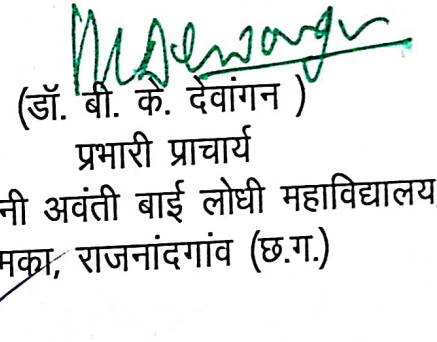 (डॉ. बी. के. देवांगन )
प्रभारी प्राचार्य
नी अवंती बाई लोधी महाविद्यालय
मका, राजनांदगांव (छ.ग.)